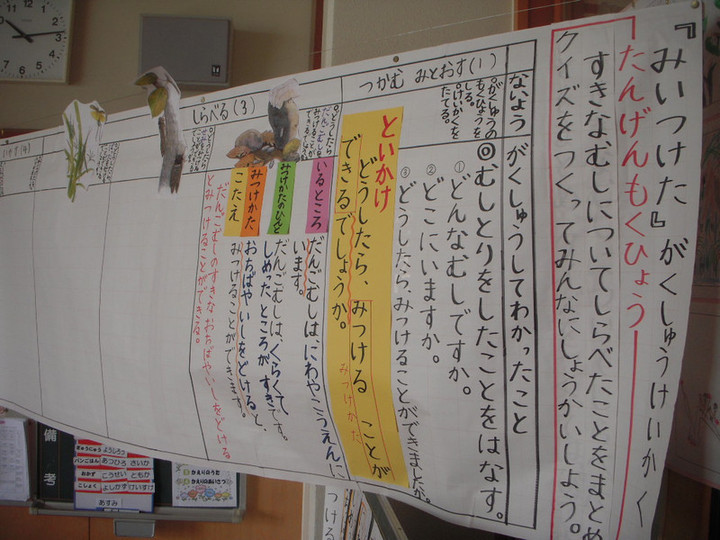 『みいつけた』がくしゅうけいかく
たんげんもくひょう
すきなむしについてしらべたことをまとめ
クイズをつくってみんなにしょうかいしよう。
ないよう
がくしゅうしてわかったこと
つかむ みとおす(1)
◎むしとりをしたことをはなす。
①どんなむしですか。
②どこにいますか。
③どうしたら、みつけることができましたか。
といかけ
どうしたら、みつける ことが
できるでしょうか。
みつけかた
しらべる(3)
いるところ
だんごむしは、にわやこうえんに
います。
みつけかたのひんと
だんごむしは、くらくて
しめったところがすきです。
みつけかた
おちばやいしをどけると、
こたえ
みつけることができます。
だんごむしのすきなおちばやいしをどける
とみつけることができる。
備考
ぎゅうにゅう
ようしろう
パンごはん
あつひろ
さいか
おかず
こうせい
ともか
こしょく
よしかず
けいすけ
あすみ
かえりのうた
かえりのあいさつ
つける